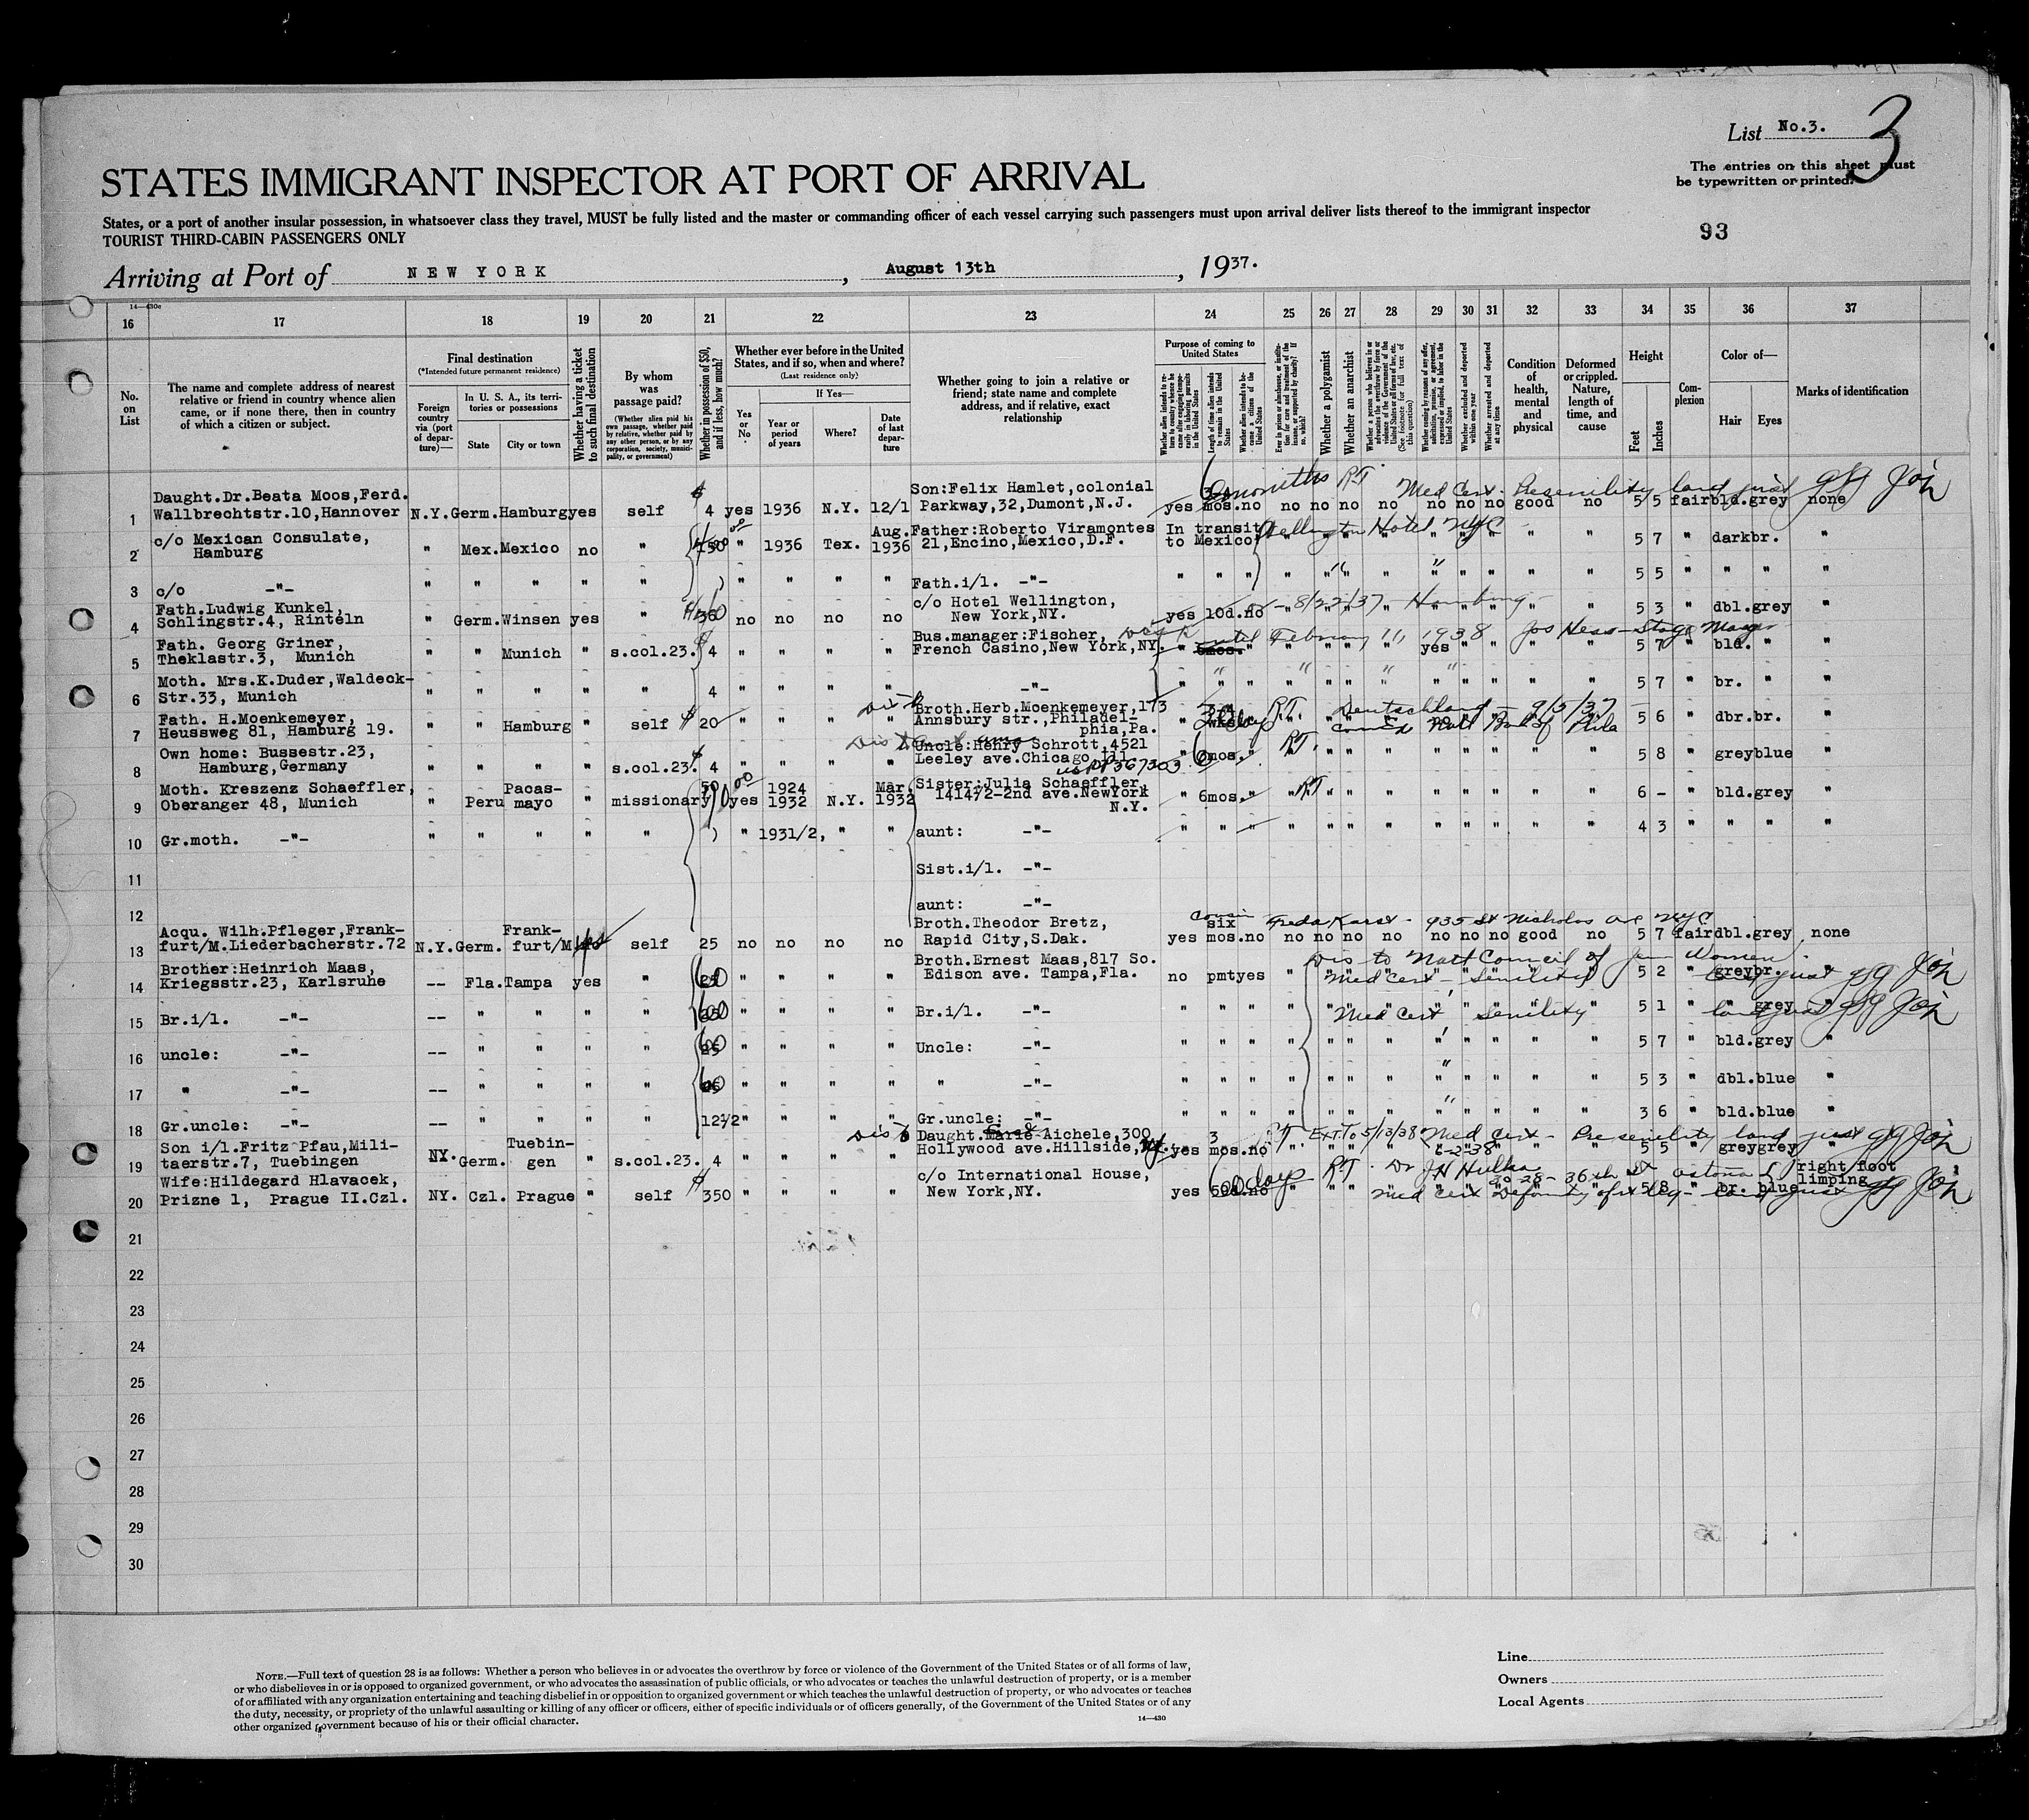 List No.3.
3
The entries on this sheet must
be typewritten or printed.
STATES IMMIGRANT INSPECTOR AT PORT OF ARRIVAL
States, or a port of another insular possession, in whatsoever class they travel, MUST be fully listed and the master or commanding officer of each vessel carrying such passengers must upon arrival deliver lists thereof to the immigrant inspector
TOURIST THIRD-CABIN PASSENGERS ONLY
93
Arriving at Port of NEW YORK, August 13th, 1937.
14—430c
16 17 18 19 20 21 22 23 24 25 26 27 28 29 30 31 32 33 34 35 36 37
No. on List
The name and complete address of nearest relative or friend in country whence alien came, or if none there, then in country of which a citizen or subject.
Final destination
(*Intended future permanent residence)
Foreign country via (port of departure)—
In U. S. A., its territories or possessions
State
City or town
Whether having a ticket to such final destination
By whom was passage paid?
(Whether alien paid his own passage, whether paid by relative, whether paid by any other person, or by any corporation, society, municipality, or government)
Whether in possession of $50, and if less, how much?
Whether ever before in the United States, and if so, when and where?
(Last residence only)
Yes or No
If Yes—
Year or period of years
Where?
Date of last departure
Whether going to join a relative or friend; state name and complete address, and if relative, exact relationship
Purpose of coming to United States
Length of time alien intends to remain in the United States
Whether alien intends to become a citizen of the United States
Whether a polygamist
Whether an anarchist
Whether excluded and deported within one year
Whether arrested and deported at any time
Condition of health, mental and physical
Deformed or crippled. Nature, length of time, and cause
Height
Feet
Inches
Complexion
Color of—
Hair
Eyes
Marks of identification
6 months RT Med Cert. Presenility
1 Daught.Dr.Beata Moos,Ferd. Wallbrechtstr.10,Hannover N.Y. Germ. Hamburg yes self $4 yes 1936 N.Y. 12/1 Son:Felix Hamlet,colonial Parkway,32,Dumont,N.J. yes mos. no no no no no no no no good no 5 5 fair bld. grey none
2 c/o Mexican Consulate, Hamburg " Mex. Mexico no " " 1936 Tex. Aug. 1936 Father:Roberto Viramontes 21,Encino,Mexico,D.F. In transit to Mexico Wellington Hotel NYC " " 5 7 " dark br. "
3 c/o -"- " " " " " " " " " Fath.i/l. -"- " " " " " " " " " " " " " 5 5 " " " "
4 Fath.Ludwig Kunkel, Schlingstr.4, Rinteln " Germ. Winsen yes " no no no no c/o Hotel Wellington, New York,NY. yes 10d. no 8/22/37 - Hamburg 5 3 " dbl. grey
5 Fath. Georg Griner, Theklastr.3, Munich " " Munich " s.col.23. $4 " " " " Bus.manager:Fischer, French Casino,New York,NY. until February 11, 1938 Jos Hess - Stage Manager yes 5 7 " bld. " "
6 Moth. Mrs.K.Duder,Waldeck- Str.33, Munich " " " " " 4 " " " " -"- " " " " " " " " " " " " 5 7 " br. " "
7 Fath. H.Moenkemeyer, Heussweg 81, Hamburg 19. " " Hamburg " self $20 " " " " Broth.Herb.Moenkemeyer,173 Annsbury str.,Philadelphia,Pa. RT. Deutschland - 9/5/37 5 6 " dbr. br. "
8 Own home: Bussestr.23, Hamburg,Germany " " " " s.col.23. $4 " " " " Uncle:Henry Schrott,4521 Leeley ave.Chicago,Ill. " 6 mos. RT. " " " 5 8 " grey blue "
US PP 367303
9 Moth. Kreszenz Schaeffler, Oberanger 48, Munich " Peru Pacasmayo " missionary yes 1924 1932 N.Y. Mar. 1932 Sister:Julia Schaeffler, 1414/2-2nd ave.NewYork N.Y. " 6mos. " RT " " " 6 - " bld. grey "
10 Gr.moth. -"- " " " " " " 1931/2, " " aunt: -"- " " " " " " " " " " " " " 4 3 " " " "
11 Sist.i/l. -"-
12 aunt: -"-
13 Acqu. Wilh.Pfleger,Frankfurt/M.Liederbacherstr.72 N.Y. Germ. Frankfurt/M yes self 25 no no no no Broth.Theodor Bretz, Rapid City,S.Dak. yes six mos. no no no no no no no no good no 5 7 fair dbl. grey none
cousin Freda Karst - 935 St Nicholas Ave NYC
Dis to Natl Council of Jew Women
14 Brother:Heinrich Maas, Kriegsstr.23, Karlsruhe -- Fla. Tampa yes " " " " " Broth.Ernest Maas,817 So. Edison ave. Tampa,Fla. no pmt yes " Med Cert - Senility 5 2 " grey br. "
15 Br.i/l. -"- -- " " " " " " " " Br.i/l. -"- " " " " Med Cert Senility 5 1 " " grey "
16 uncle: -"- -- " " " " " " " " Uncle: -"- " " " " " " " " " " " " 5 7 " bld. grey "
17 " -"- -- " " " " " " " " " -"- " " " " " " " " " " " " 5 3 " dbl. blue "
18 Gr.uncle: -"- -- " " " " 12½ " " " " Gr.uncle: -"- " " " " " " " " " " " " 3 6 " bld. blue "
19 Son i/l.Fritz Pfau,Militaerstr.7, Tuebingen NY. Germ. Tuebingen " s.col.23. 4 " " " " Daught.Marie Aichele,300 Hollywood ave.Hillside, yes 3 mos. no Ext To 5/13/38 Med Cert - Presenility 5 5 " grey grey "
6-2-38
20 Wife:Hildegard Hlavacek, Prizne 1, Prague II.Czl. NY. Czl. Prague " self $350 " " " " c/o International House, New York,NY. yes no 60 days RT. Dr JH Hulka 20-28-36th St Astoria Med Cert Deformity of rt leg 5 8 " br. blue right foot limping
21
22
23
24
25
26
27
28
29
30
NOTE.—Full text of question 28 is as follows: Whether a person who believes in or advocates the overthrow by force or violence of the Government of the United States or of all forms of law,
or who disbelieves in or is opposed to organized government, or who advocates the assassination of public officials, or who advocates or teaches the unlawful destruction of property, or is a member
of or affiliated with any organization entertaining and teaching disbelief in or opposition to organized government or which teaches the unlawful destruction of property, or who advocates or teaches
the duty, necessity, or propriety of the unlawful assaulting or killing of any officer or officers, either of specific individuals or of officers generally, of the Government of the United States or of any
other organized government because of his or their official character.
14—430
Line
Owners
Local Agents